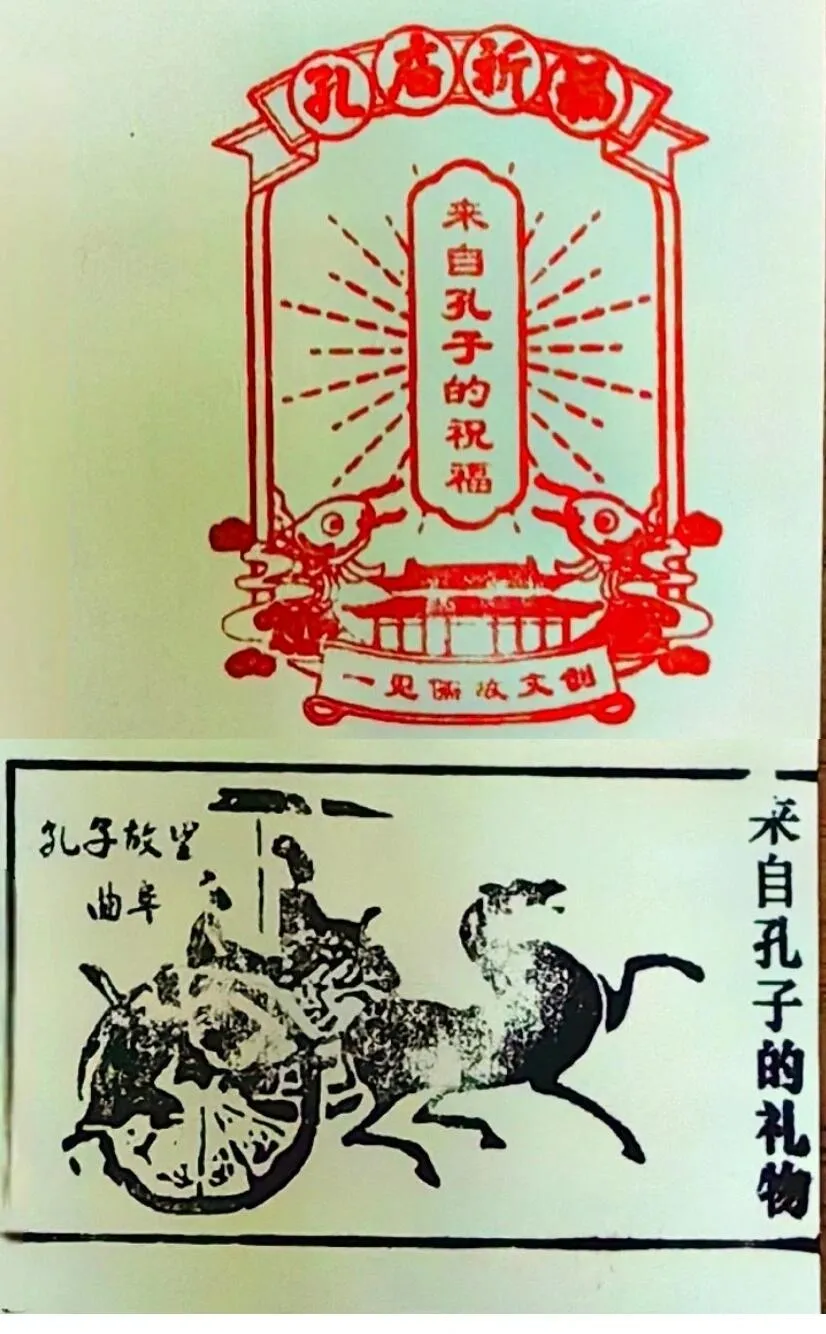 孔庙祈福
来自孔子的祝福
一见儒故文创
孔子故里
曲阜
来自孔子的礼物